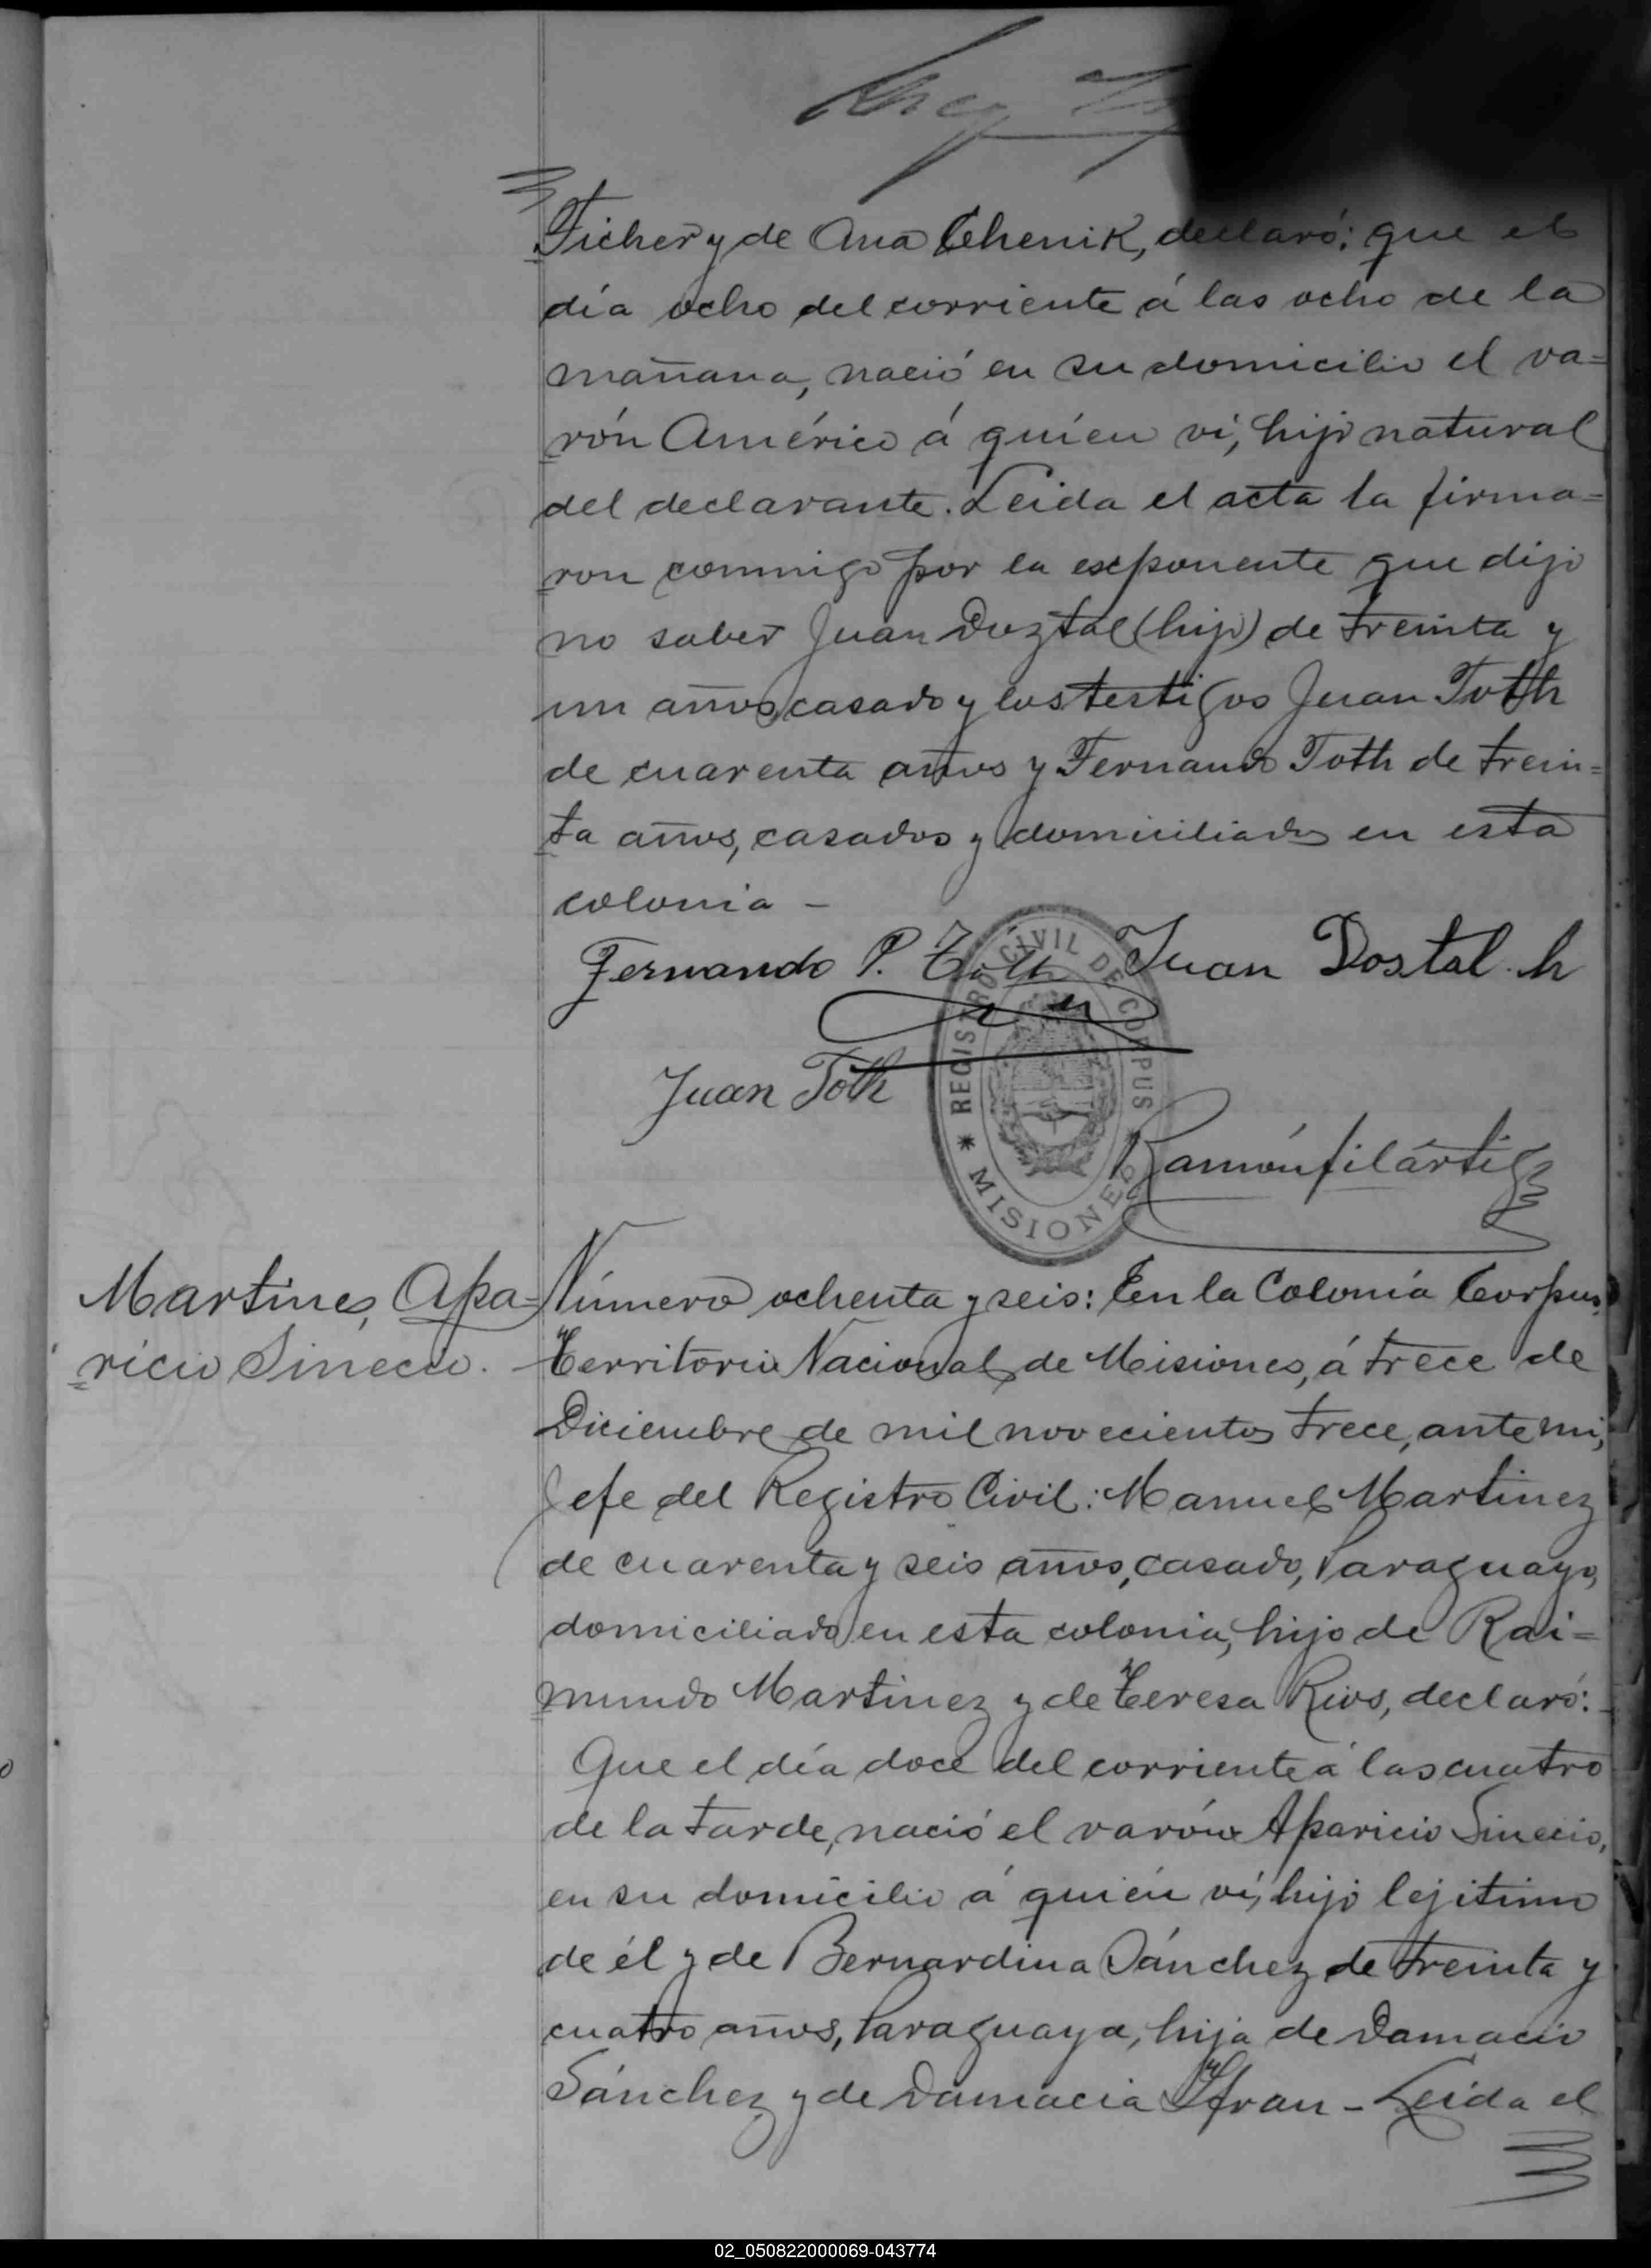 Ficher y de Ana Chenik, declaró: que el
día ocho del corriente á las ocho de la
mañana, nació en su domicilio el va=
rón Américo á quien ví, hijo natural
del declarante. Leida el acta la firma=
ron conmigo por la exponente que dijo
no saber Juan Doztal (hijo) de treinta y
un años, casado y los testigos Juan Toth
de cuarenta años y Fernando Toth de trein=
ta años, casados y domiciliados en esta
colonia -
Fernando P. Toth Juan Dostal. h
Juan Toth
REGISTRO CIVIL DE CORPUS
* MISIONES *
Ramón Filártiga
Martines, Apa= Número ochenta y seis: En la Colonia Corpus,
ricio Sinecio. Territorio Nacional de Misiones, á trece de
Diciembre de mil novecientos trece, ante mi,
Jefe del Registro Civil: Manuel Martinez
de cuarenta y seis años, casado, Paraguayo,
domiciliado en esta colonia, hijo de Rai=
mundo Martinez y de Teresa Rios, declaró:
Que el día doce del corriente á las cuatro
de la tarde, nació el varón Aparicio Sinecio,
en su domicilio á quién ví, hijo lejitimo
de él y de Bernardina Sánchez de treinta y
cuatro años, Paraguaya, hija de Damacio
Sánchez y de Damacia Yfran - Leida el
02_050822000069-043774